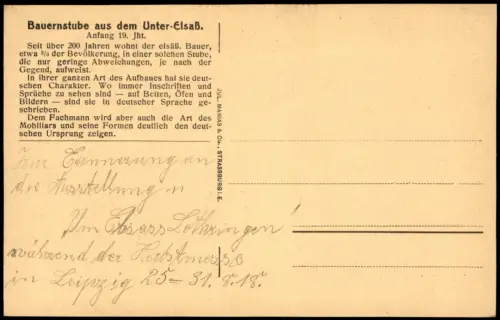 Bauernstube aus dem Unter-Elsaß.
Anfang 19. Jht.
Seit über 200 Jahren wohnt der elsäß. Bauer,
etwa ⅔ der Bevölkerung, in einer solchen Stube,
die nur geringe Abweichungen, je nach der
Gegend, aufweist.
In ihrer ganzen Art des Aufbaues hat sie deut-
schen Charakter. Wo immer Inschriften und
Sprüche zu sehen sind — auf Betten, Öfen und
Bildern — sind sie in deutscher Sprache ge-
schrieben.
Dem Fachmann wird aber auch die Art des
Mobiliars und seine Formen deutlich den deut-
schen Ursprung zeigen.
JUL. MANIAS & Cie., STRASSBURG I. E.
Zur Erinnerung an
die Ausstellung
Elsass Lothringen!
während der Herbstmesse
in Leipzig 25–31.8.18.